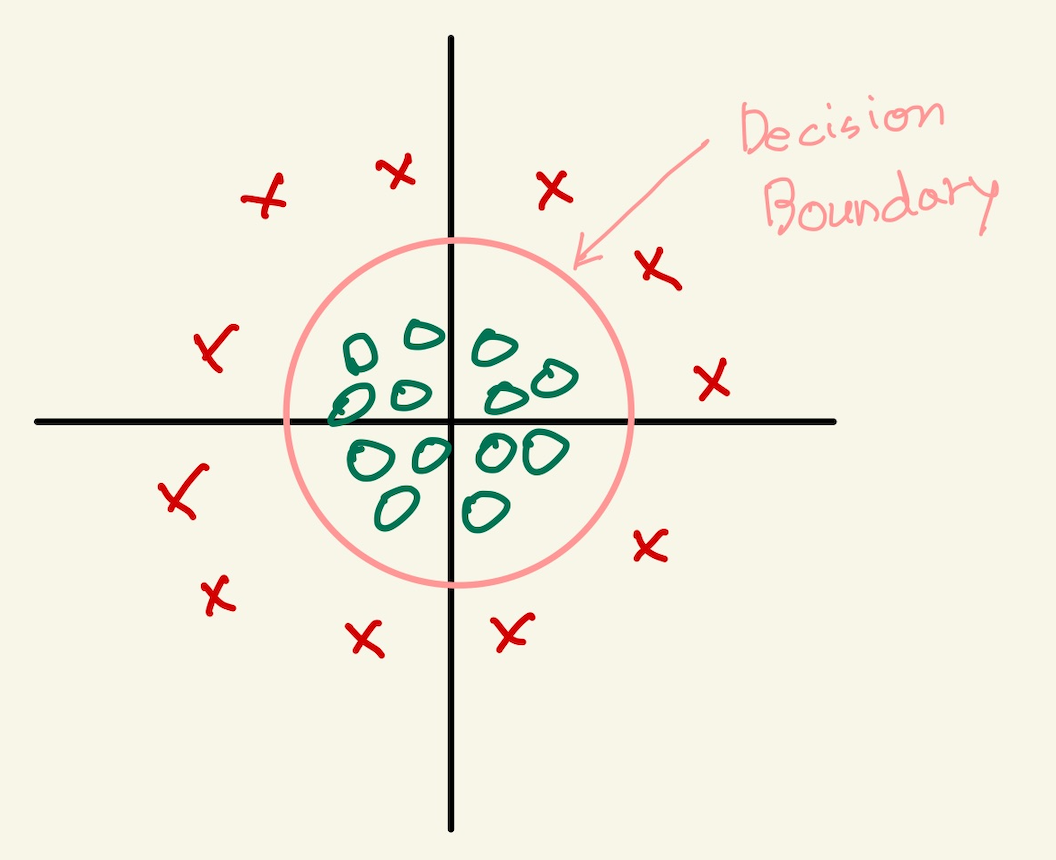 Decision
Boundary